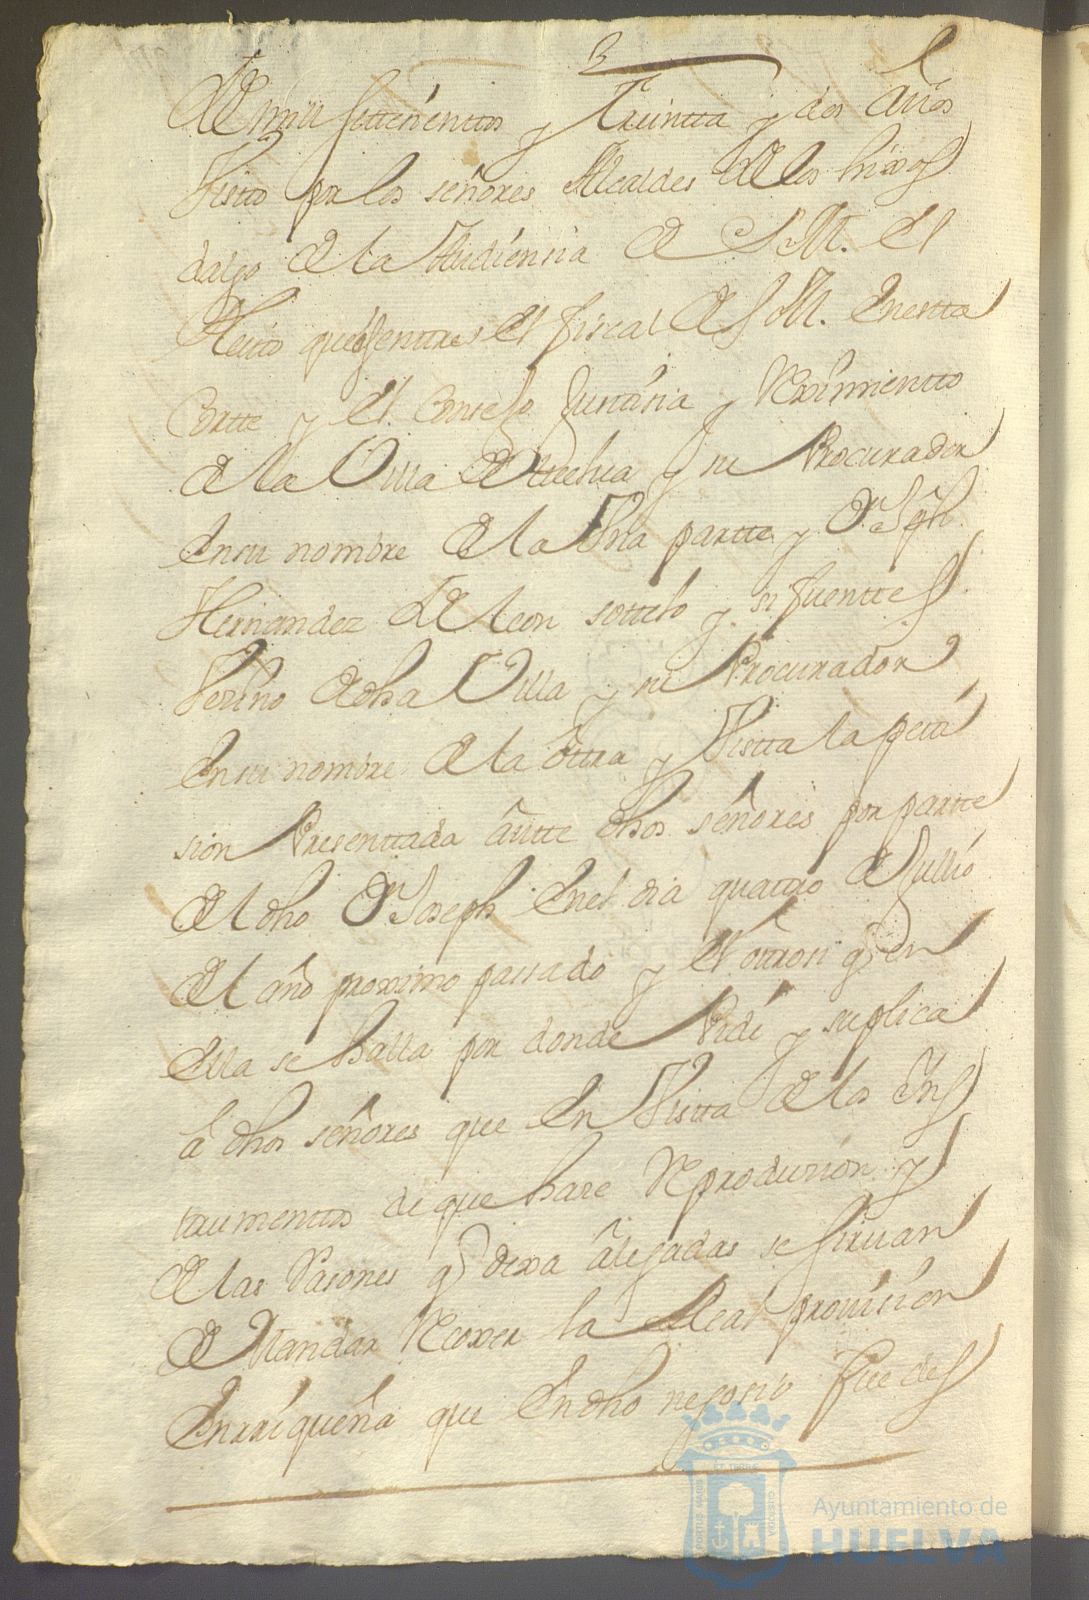 De mill settezenttos y Treintta y dos años
Visto por los señores Alcaldes de los hixos
dalgo de la Audienzia de S. M. el
Pleito que es entre el fiscal de S. M. en esta
Cortte y el Consejo Justizia y Reximientto
de la Villa de Huelva y su Procurador
en su nombre de la Una partte y Dn Jph
Hernandez de Leon sottelo y sifuenttes
Vezino de dha Villa y su Procurador
en su nombre de la ottra y Vistta la peti
sion Presenttada antte dhos señores por partte
del dho Dn Joseph en el dia quattro de Jullio
del año proximo passado y el otrosi q en
ella se halla por donde Pide y suplica
a dhos señores que en Vistta de los Yns
trumenttos de que hase Reprodusion y
de las Rasones q dexa alejadas se sirvan
de Mandar Recoxer la Real provision
Enrriqueña que en dho negosio fue des
Ayuntamiento de
HUELVA